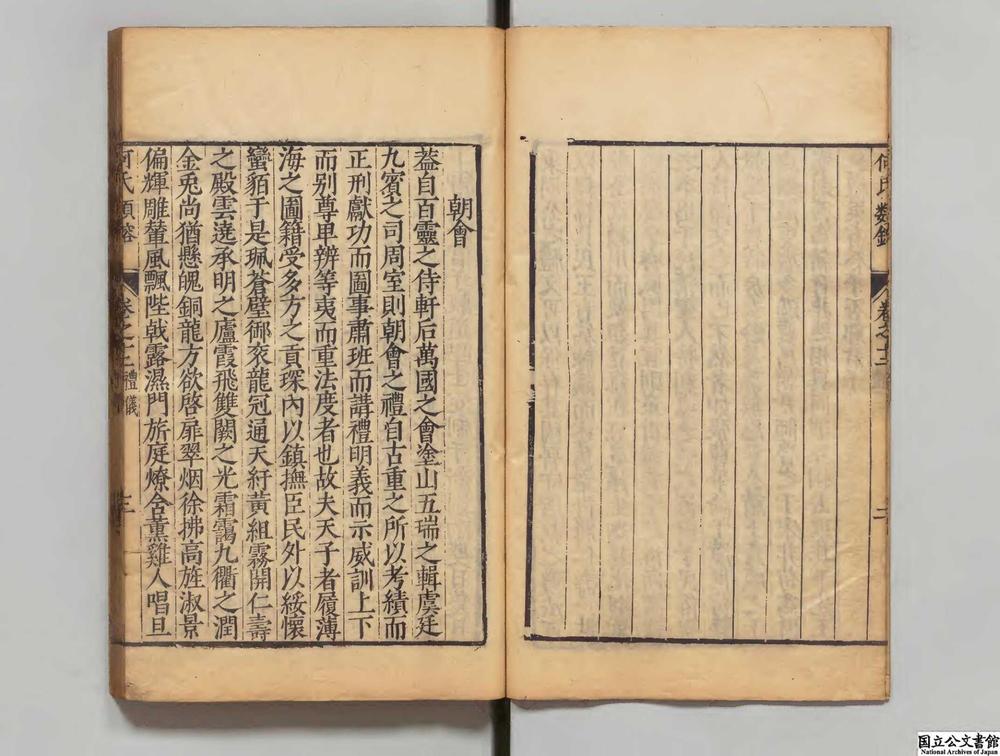 何氏類鎔
卷之十二
二
朝會
葢自百靈之侍軒后萬國之會塗山五瑞之輯虞廷
九賓之司周室則朝會之禮自古重之所以考績而
正刑獻功而圖事肅班而講禮明義而示威訓上下
而别尊卑辨等夷而重法度者也故夫天子者履薄
海之圖籍受多方之貢琛內以鎮撫臣民外以綏懷
蠻貊于是珮蒼璧御衮龍冠通天紆黃組霧開仁壽
之殿雲遶承明之廬霞飛雙闕之光霜靄九衢之潤
金兎尚猶懸魄銅龍方欲啓扉翠烟徐拂高旌淑景
偏輝雕輦風飄陛戟露濕門旂庭燎舍薫雞人唱旦
何氏類鎔
卷之十二
禮儀
三
国立公文書館
National Archives of Japan